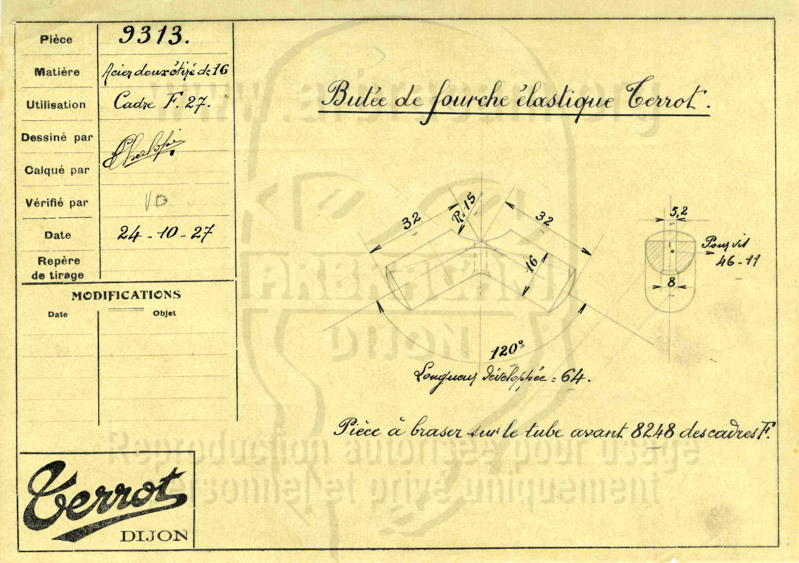 Pièce 9313.
Matière Acier doux étiré de 16
Utilisation Cadre F. 27.
Dessiné par
Calqué par
Vérifié par VD
Date 24-10-27
Repère
de tirage
MODIFICATIONS
Date Objet
Butée de fourche élastique Terrot.
32
R. 15
32
16
120°
Longueur développée = 64.
5,2
Pour vis
46-11
8
Pièce à braser sur le tube avant 8248 des cadres F.
Reproduction autorisée pour usage
personnel et privé uniquement
DIJON
Terrot
DIJON